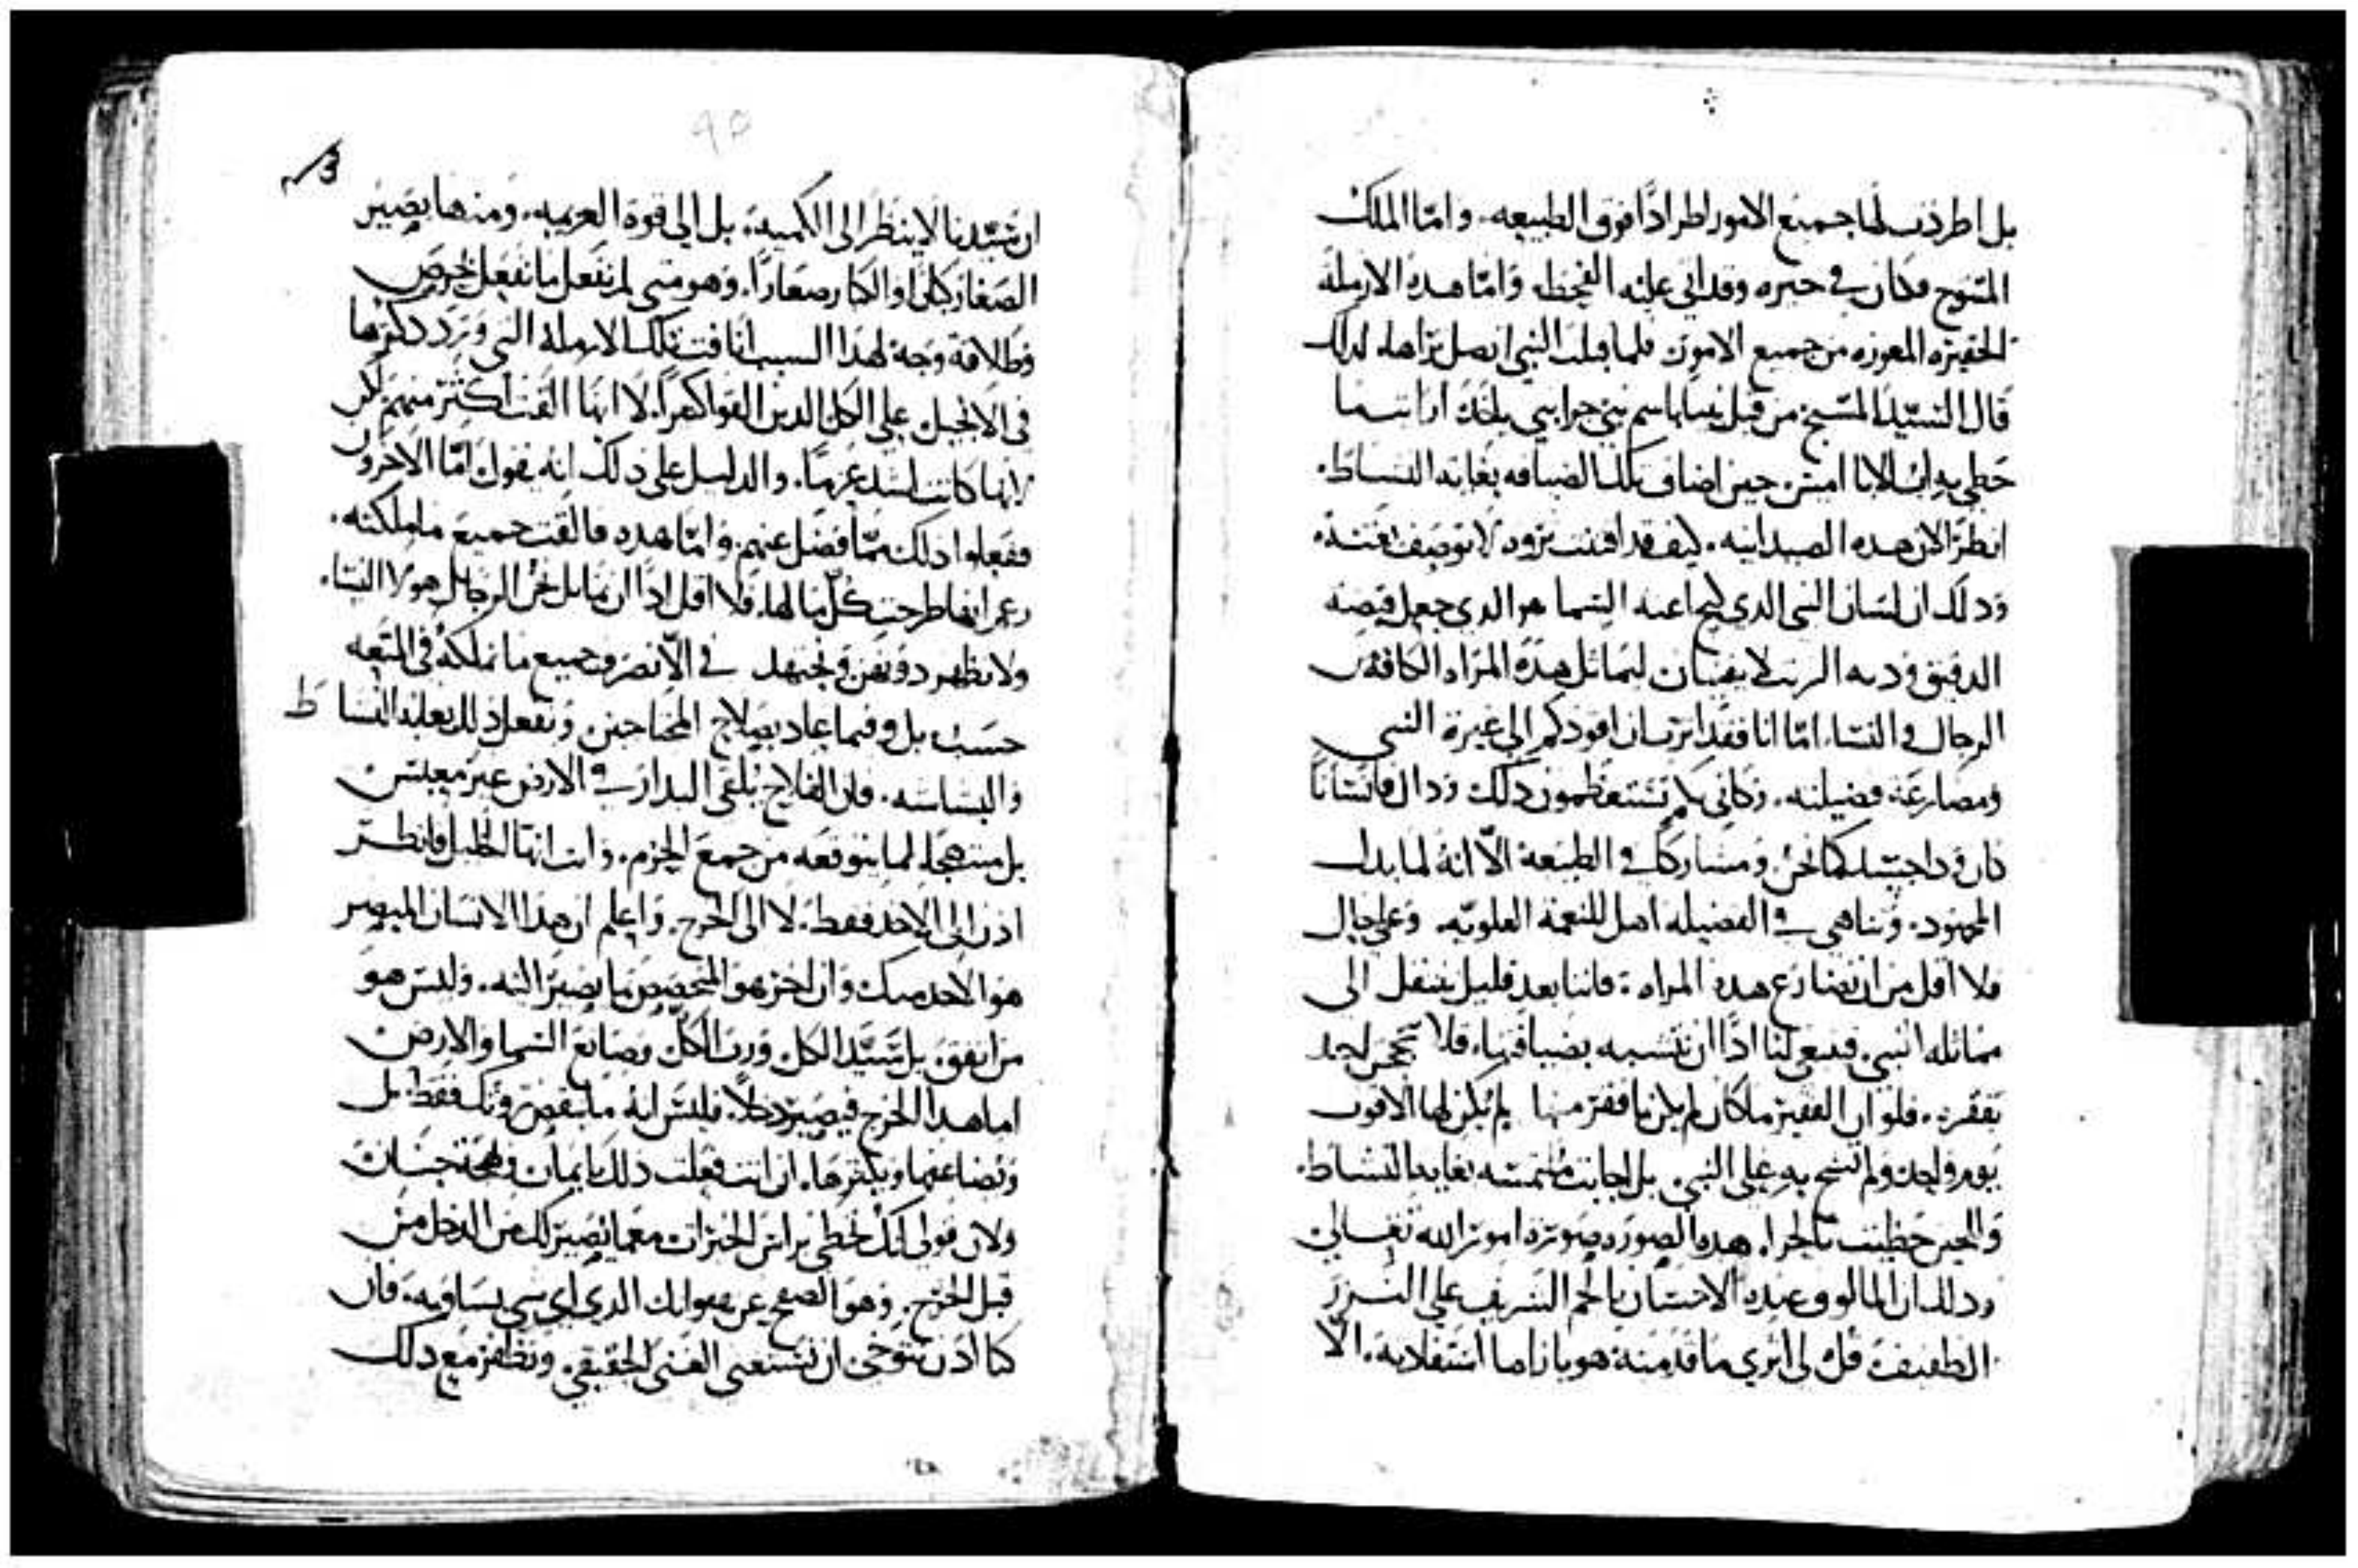 بل اطردت لها جميع الامور اطرادًا فوق الطبيعه. وامّا الملك
المتوج فكان في حيره وقد اتى عليه القحط. وامّا هده الارمله
الحقيره المعوزه من جميع الامور فلما قبلت النبي انصل بَرّاها. لدلك
قال السيّد المسيح من قبل نبيا باسم نبي جرا نبي ياخد. ارايت ما
حطي به اب الابا امس. حين اضاف تلك الضيافه بغايه النشاط.
انظر الان هده الصيدانيه. كيف قد اقتنت تروه لا توصف لغتنه
ودلك ان لسان النبي الدي لجم اعنه السما هو الدي جعل قبضه
الدقيق ودبه الزيت لا يفنيان ليماثل هده المراه الكافه من
الرجال والنساء. امّا انا فقد اترت ان اقودكم الى غيرة النبي
ومصارعة فضيلته. وكاني بكم تستعظمون دلك ودال فانسانًا
كان ودا جسد كما نحن ومشاركًا في الطبيعة الّا انه لما بدل
المجهود. وتناهى في الفضيله اهل للنعمة العلويّه. وعلى حال
فلا اقل من ان نضارع هده المراه: فاننا بعد قليل ننتقل الى
مماثله النبي. فينبغي لنا ادًا ان نتشبه بضيافتها. فلا يحتجن احد
بفقره. فلو ان الفقير ما كان لم يكن بافقر منها لم يكن لها الا قوت
يوم واحد ولم تشح به على النبي. بل اجابت ملتمسه بغايه النشاط.
والحين حظيت بالجزا. هده الصوره صورة امور الله تعالى
ودلك ان المالوف عنده الاحسان بالجم الشريف على النزر
الطفيف قل لي ايّ شي ما قدمته هو بازا ما استفادته. الّا
ان سيّدنا لا ينظر الى الكميه. بل الى قوة العزيمه. ومنها يصير
الصغار كبارًا والكبار صغارًا. وهو متى لم نفعل ما نفعل بحرص
وطلاقة وجه لهدا السبب انافت تلك الارملة التي ورد دكرها
في الانجيل على الكل الدين القوا كثيرًا. لا انها القت اكثر منهم لكن
لانها كانت اشد عزمًا. والدليل على دلك انه يقول امّا الاخرون
ففعلوا دلك ممّا فضل عنهم. وامّا هده فالقت جميع ما ملكته.
زعم انها طرحت كلّ ما لها. فلا اقل ادًا ان نماثل نحن الرجال هولا النسا.
ولا نظهر دونهن ونجتهد في الّا نصرف جميع ما نملكه في المتعه
حسب بل وفيما عاد بصلاح المحتاجين ونفعل دلك بغايه النشاط
والبشاشه. فان الفلاح يلقي البدار في الارض غير معبس
بل مبتهجًا لما يتوقعه من جمع الحزم. وانت ايها الخليل فانظر
ادن الى الاخد فقط. لا الى الخرج. واعلم ان هدا الانسان المبصر
هو الاخد منك وان اخر هو المتخصص بما يصير اليه. وليس هو
من اتفق. بل سيّد الكل ورب الكل وصانع السما والارض
اما هدا الخرج فيصير دخلًا. فليس انه ما ينقص رزقك فقط. بل
وتضاعفها ويكثرها. ان انت فعلت دلك بايمان ومحبّة حسان
ولان قولي لك تحظى براس الخيرات مع ما يصير لك من الدخل من
قبل الخرج. وهو الصفح عن هفواتك الدي اي شي يساويه. فان
كنا ادن نتوخى ان نستغني الغنى الحقيقي. ونظفر مع دلك